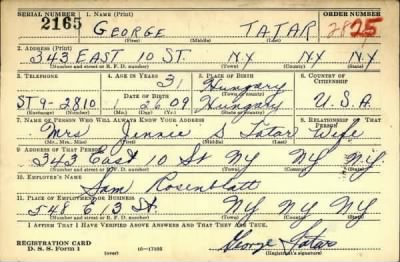 SERIAL NUMBER 1. NAME (Print) ORDER NUMBER
2165 GEORGE TATAR 2825
(First) (Middle) (Last)
2. ADDRESS (Print)
343 EAST 10 ST. NY NY
(Number and street or R. F. D. number) (Town) (County) (State)
3. TELEPHONE 4. AGE IN YEARS 5. PLACE OF BIRTH 6. COUNTRY OF CITIZENSHIP
31 Hungary
DATE OF BIRTH
ST9-2810 1 26 09 Hungary U.S.A.
(Exchange) (Number) (Mo.) (Day) (Yr.) (State or country)
7. NAME OF PERSON WHO WILL ALWAYS KNOW YOUR ADDRESS 8. RELATIONSHIP OF THAT PERSON
Mrs Jennie S Tatar Wife
(Mr., Mrs., Miss) (First) (Middle) (Last)
9. ADDRESS OF THAT PERSON
343 East 10 St NY NY N.Y.
(Number and street or R. F. D. number) (Town) (County) (State)
10. EMPLOYER'S NAME
Sam Rosenblatt
11. PLACE OF EMPLOYMENT OR BUSINESS
548 E 13 St. NY NY NY
(Number and street or R. F. D. number) (Town) (County) (State)
I AFFIRM THAT I HAVE VERIFIED ABOVE ANSWERS AND THAT THEY ARE TRUE.
REGISTRATION CARD
D. S. S. Form 1 (over) 16—17105 George Tatar
(Registrant's signature)